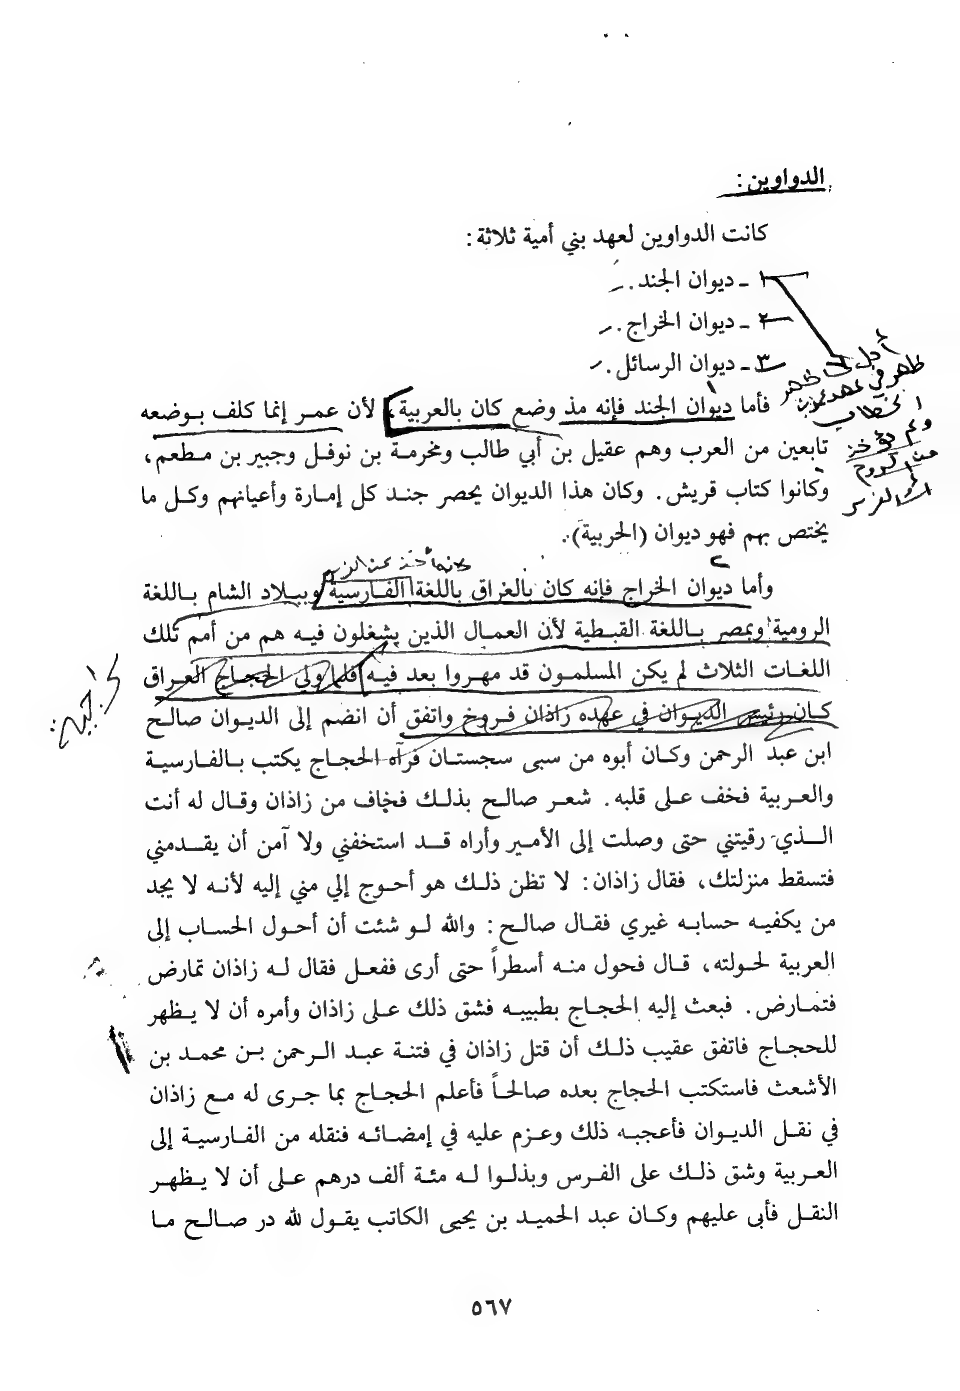 الدواوين:
كانت الدواوين لعهد بني أمية ثلاثة:
١ ـ ديوان الجند.
٢ ـ ديوان الخراج.
٣ ـ ديوان الرسائل.
أول ما ظهر
ظهر في عهد عمر بن
الخطاب
ولم يؤخذ
من الروم
أو الفرس
فأما ديوان الجند فإنه مذ وضع كان بالعربية، لأن عمر إنما كلف بوضعه
تابعين من العرب وهم عقيل بن أبي طالب ومخرمة بن نوفل وجبير بن مطعم،
وكانوا كتاب قريش. وكان هذا الديوان يحصر جند كل إمارة وأعيانهم وكل ما
يختص بهم فهو ديوان (الحربية).
وأما ديوان الخراج فإنه كان بالعراق باللغة الفارسية وببلاد الشام باللغة
الرومية وبمصر باللغة القبطية لأن العمال الذين يشغلون فيه هم من أمم تلك
اللغات الثلاث لم يكن المسلمون قد مهروا بعد فيه فلما ولى الحجاج العراق
كان رئيس الديوان في عهده زاذان فروخ واتفق أن انضم إلى الديوان صالح
ابن عبد الرحمن وكان أبوه من سبى سجستان فرآه الحجاج يكتب بالفارسية
والعربية فخف على قلبه. شعر صالح بذلك فخاف من زاذان وقال له أنت
الذي رقيتني حتى وصلت إلى الأمير وأراه قد استخفني ولا آمن أن يقدمني
فتسقط منزلتك، فقال زاذان: لا تظن ذلك هو أحوج إلي مني إليه لأنه لا يجد
من يكفيه حسابه غيري فقال صالح: والله لو شئت أن أحول الحساب إلى
العربية لحولته، قال فحول منه أسطراً حتى أرى ففعل فقال له زاذان تمارض
فتمارض. فبعث إليه الحجاج بطبيبه فشق ذلك على زاذان وأمره أن لا يظهر
للحجاج فاتفق عقيب ذلك أن قتل زاذان في فتنة عبد الرحمن بن محمد بن
الأشعث فاستكتب الحجاج بعده صالحاً فأعلم الحجاج بما جرى له مع زاذان
في نقل الديوان فأعجبه ذلك وعزم عليه في إمضائه فنقله من الفارسية إلى
العربية وشق ذلك على الفرس وبذلوا له مئة ألف درهم على أن لا يظهر
النقل فأبى عليهم وكان عبد الحميد بن يحيى الكاتب يقول لله در صالح ما
٥٦٧